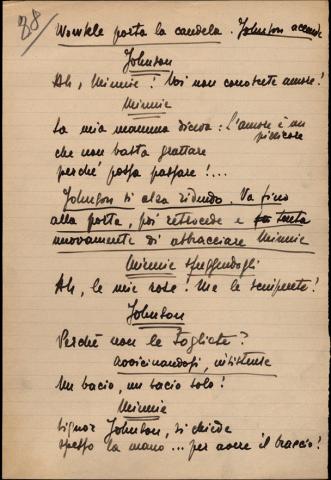 38
Wowkle porta la candela. Johnson accende
Johnson
Ah, Minnie! Voi non conoscete amore!
Minnie
La mia mamma diceva: L'amore è un
pizzicore
che non basta grattare
perché possa passare!...
Johnson si alza ridendo. Va fino
alla porta, poi retrocede e tenta
nuovamente di abbracciare Minnie
Minnie sfuggendogli
Ah, le mie rose! Me le sciperete!
Johnson
Perché non le togliete?
avvicinandosi, insistente
Un bacio, un bacio solo!
Minnie
Signor Johnson, si chiede
spesso la mano... per avere il braccio!